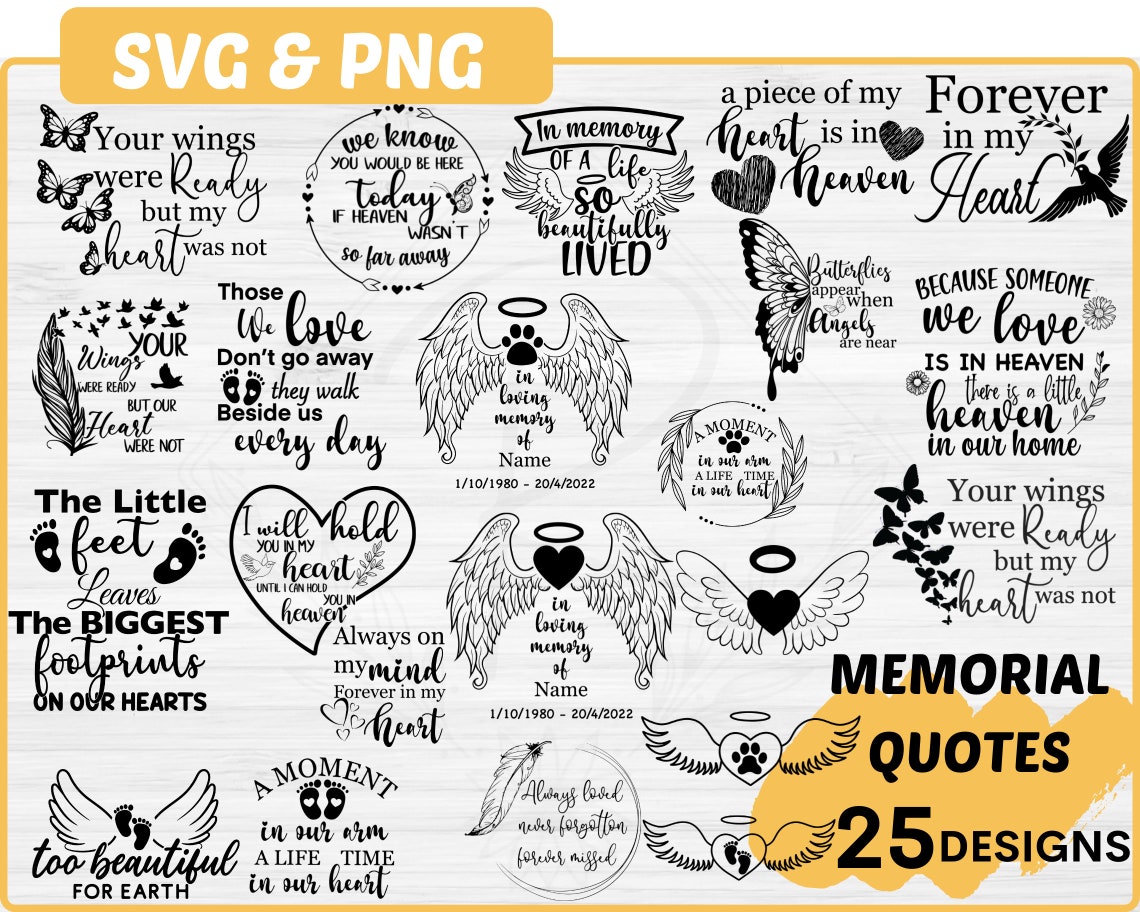 SVG & PNG
Your wings
were Ready
but my
heart was not
we know
YOU WOULD BE HERE
today
IF HEAVEN
WASN'T
so far away
In memory
OF A life
so
beautifully
LIVED
a piece of my
heart is in
heaven
Forever
in my
Heart
YOUR
Wings
WERE READY
BUT OUR
Heart
WERE NOT
Those
We love
Don't go away
they walk
Beside us
every day
in
loving
memory
of
Name
1/10/1980 - 20/4/2022
Butterflies
appear
when
Angels
are near
BECAUSE SOMEONE
we love
IS IN HEAVEN
there is a little
heaven
in our home
A MOMENT
in our arm
A LIFE TIME
in our heart
The Little
feet
Leaves
The BIGGEST
footprints
ON OUR HEARTS
I will hold
YOU IN MY
heart
UNTIL I CAN HOLD
YOU IN
heaven
Always on
my mind
Forever in my
Heart
in
loving
memory
of
Name
1/10/1980 - 20/4/2022
Your wings
were Ready
but my
heart was not
too beautiful
FOR EARTH
A MOMENT
in our arm
A LIFE TIME
in our heart
Always loved
never forgotton
forever missed
MEMORIAL
QUOTES
25 DESIGNS